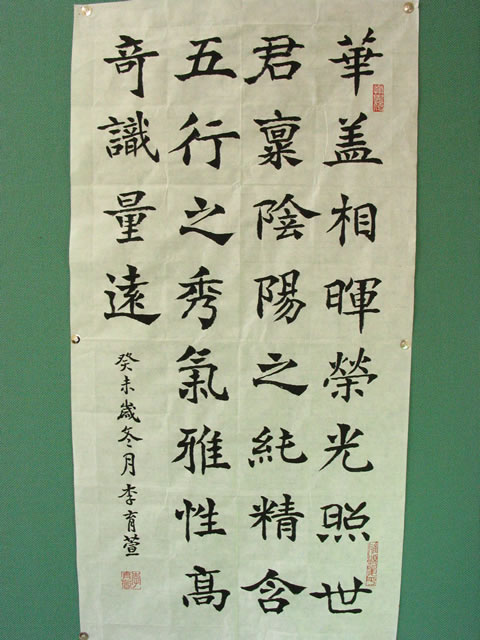 華盖相暉榮光照世
君稟陰陽之純精含
五行之秀氣雅性高
奇識量遠
癸未歲冬月李育萱